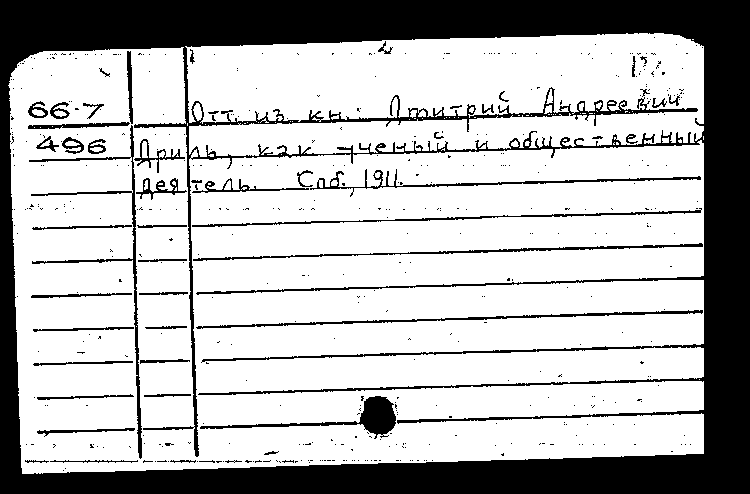 2
66-7 Отт. из кн.: Дмитрий Андреевич
496 Дриль, как ученый и общественный
деятель. Спб., 1911.